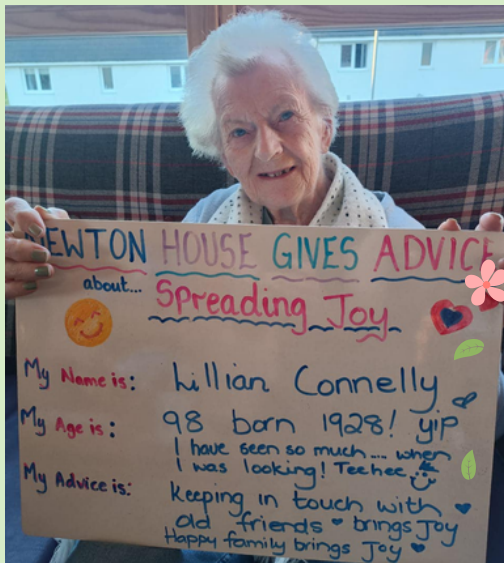 NEWTON HOUSE GIVES ADVICE
about...
Spreading Joy
My Name is: Lillian Connelly
My Age is: 98 born 1928! yip
I have seen so much.... when
I was looking! Teehee
My Advice is: Keeping in touch with
old friends brings Joy
Happy family brings Joy